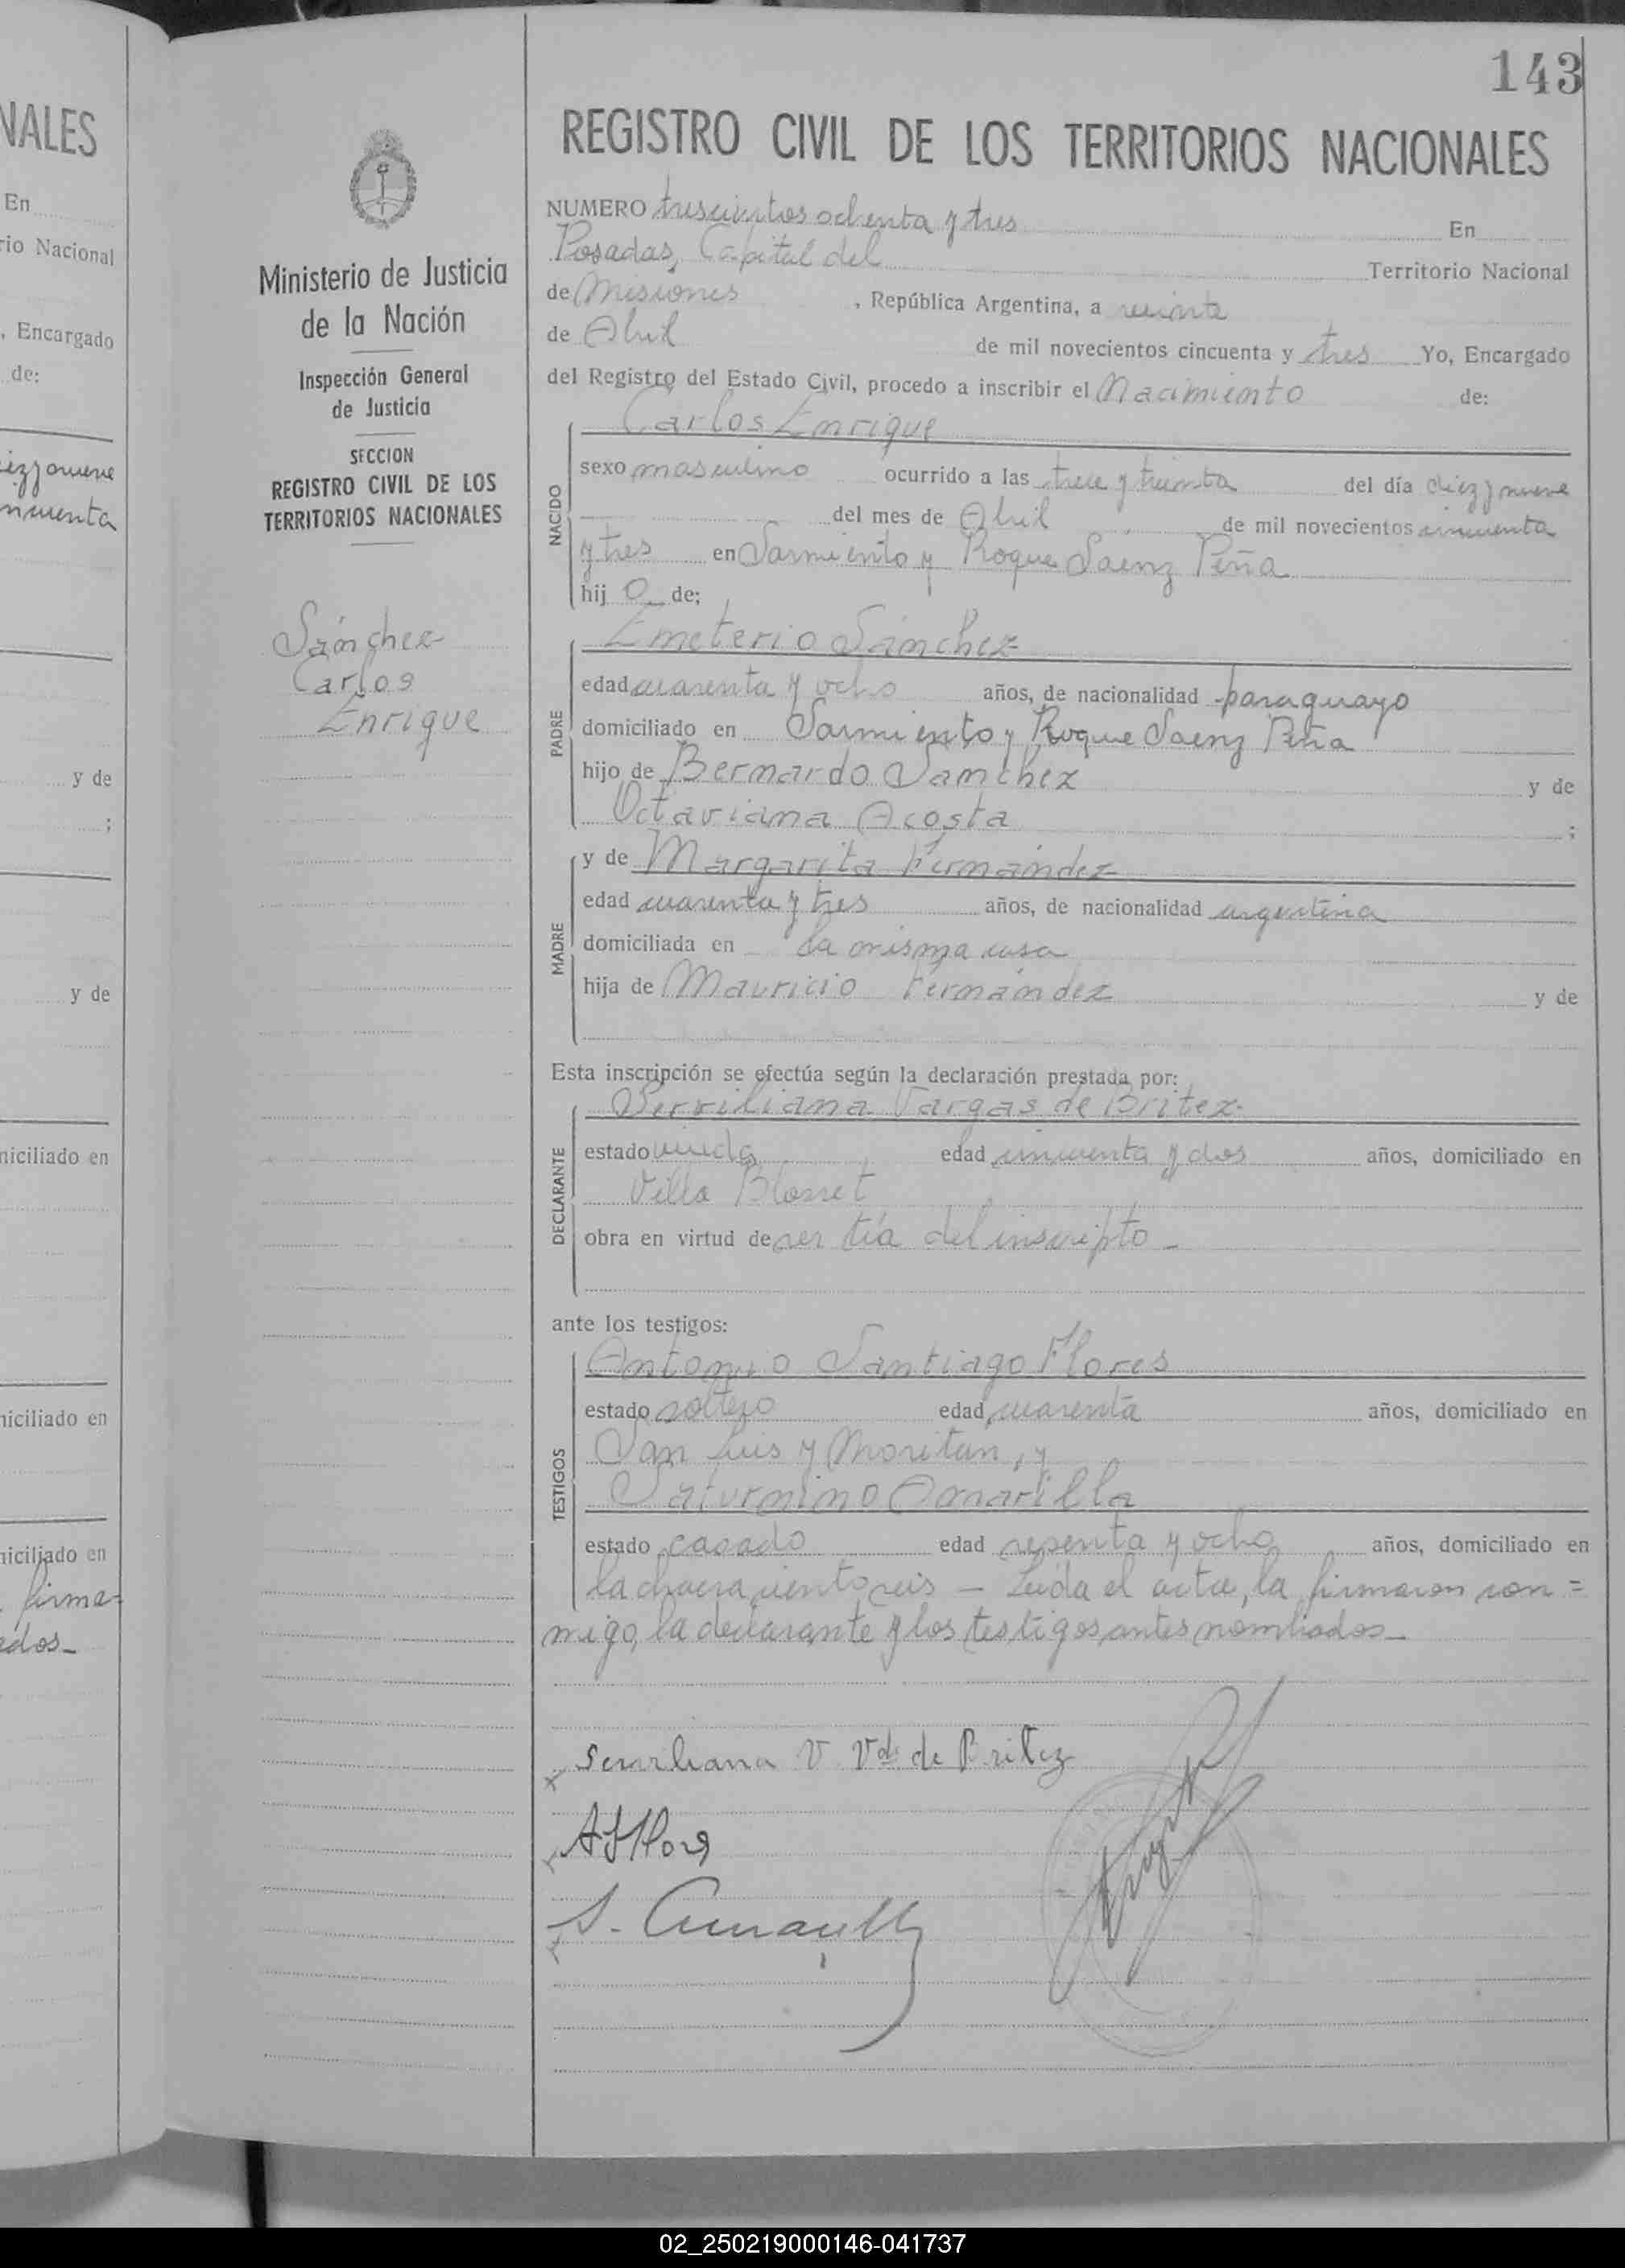 NALES
En
rio Nacional
, Encargado
de:
iezynueve
ncuenta
y de
;
y de
niciliado en
niciliado en
niciliado en
firma-
ados_
143
REGISTRO CIVIL DE LOS TERRITORIOS NACIONALES
Ministerio de Justicia
de la Nación
Inspección General
de Justicia
SECCION
REGISTRO CIVIL DE LOS
TERRITORIOS NACIONALES
Sánchez
Carlos
Enrique
NUMERO trescientos ochenta y tres En
Posadas, Capital del Territorio Nacional
de Misiones , República Argentina, a veinte
de Abril de mil novecientos cincuenta y tres Yo, Encargado
del Registro del Estado Civil, procedo a inscribir el Nacimiento de:
Carlos Enrique
NACIDO
sexo masculino ocurrido a las trece y treinta del día diez y nueve
del mes de Abril de mil novecientos cincuenta
y tres en Sarmiento y Roque Saenz Peña
hij o de;
Emeterio Sánchez
PADRE
edad cuarenta y ocho años, de nacionalidad paraguayo
domiciliado en Sarmiento y Roque Saenz Peña
hijo de Bernardo Sanchez y de
Octaviana Acosta ;
MADRE
y de Margarita Fernández
edad cuarenta y tres años, de nacionalidad argentina
domiciliada en la misma casa
hija de Mauricio Fernandez y de
Esta inscripción se efectúa según la declaración prestada por:
Serviliana Vargas de Britez
DECLARANTE
estado viuda edad cincuenta y dos años, domiciliado en
Villa Blosset
obra en virtud de ser tía del inscripto _
ante los testigos:
Antonio Santiago Flores
TESTIGOS
estado soltero edad cuarenta años, domiciliado en
San Luis y Moritan, y
Saturnino Amarilla
estado casado edad sesenta y ocho años, domiciliado en
la chacra ciento seis — Leída el acta, la firmaron con =
migo, la declarante y los testigos antes nombrados_
Serviliana V. Vda de Britez
ASFlores
S. Amarilla
02_250219000146-041737